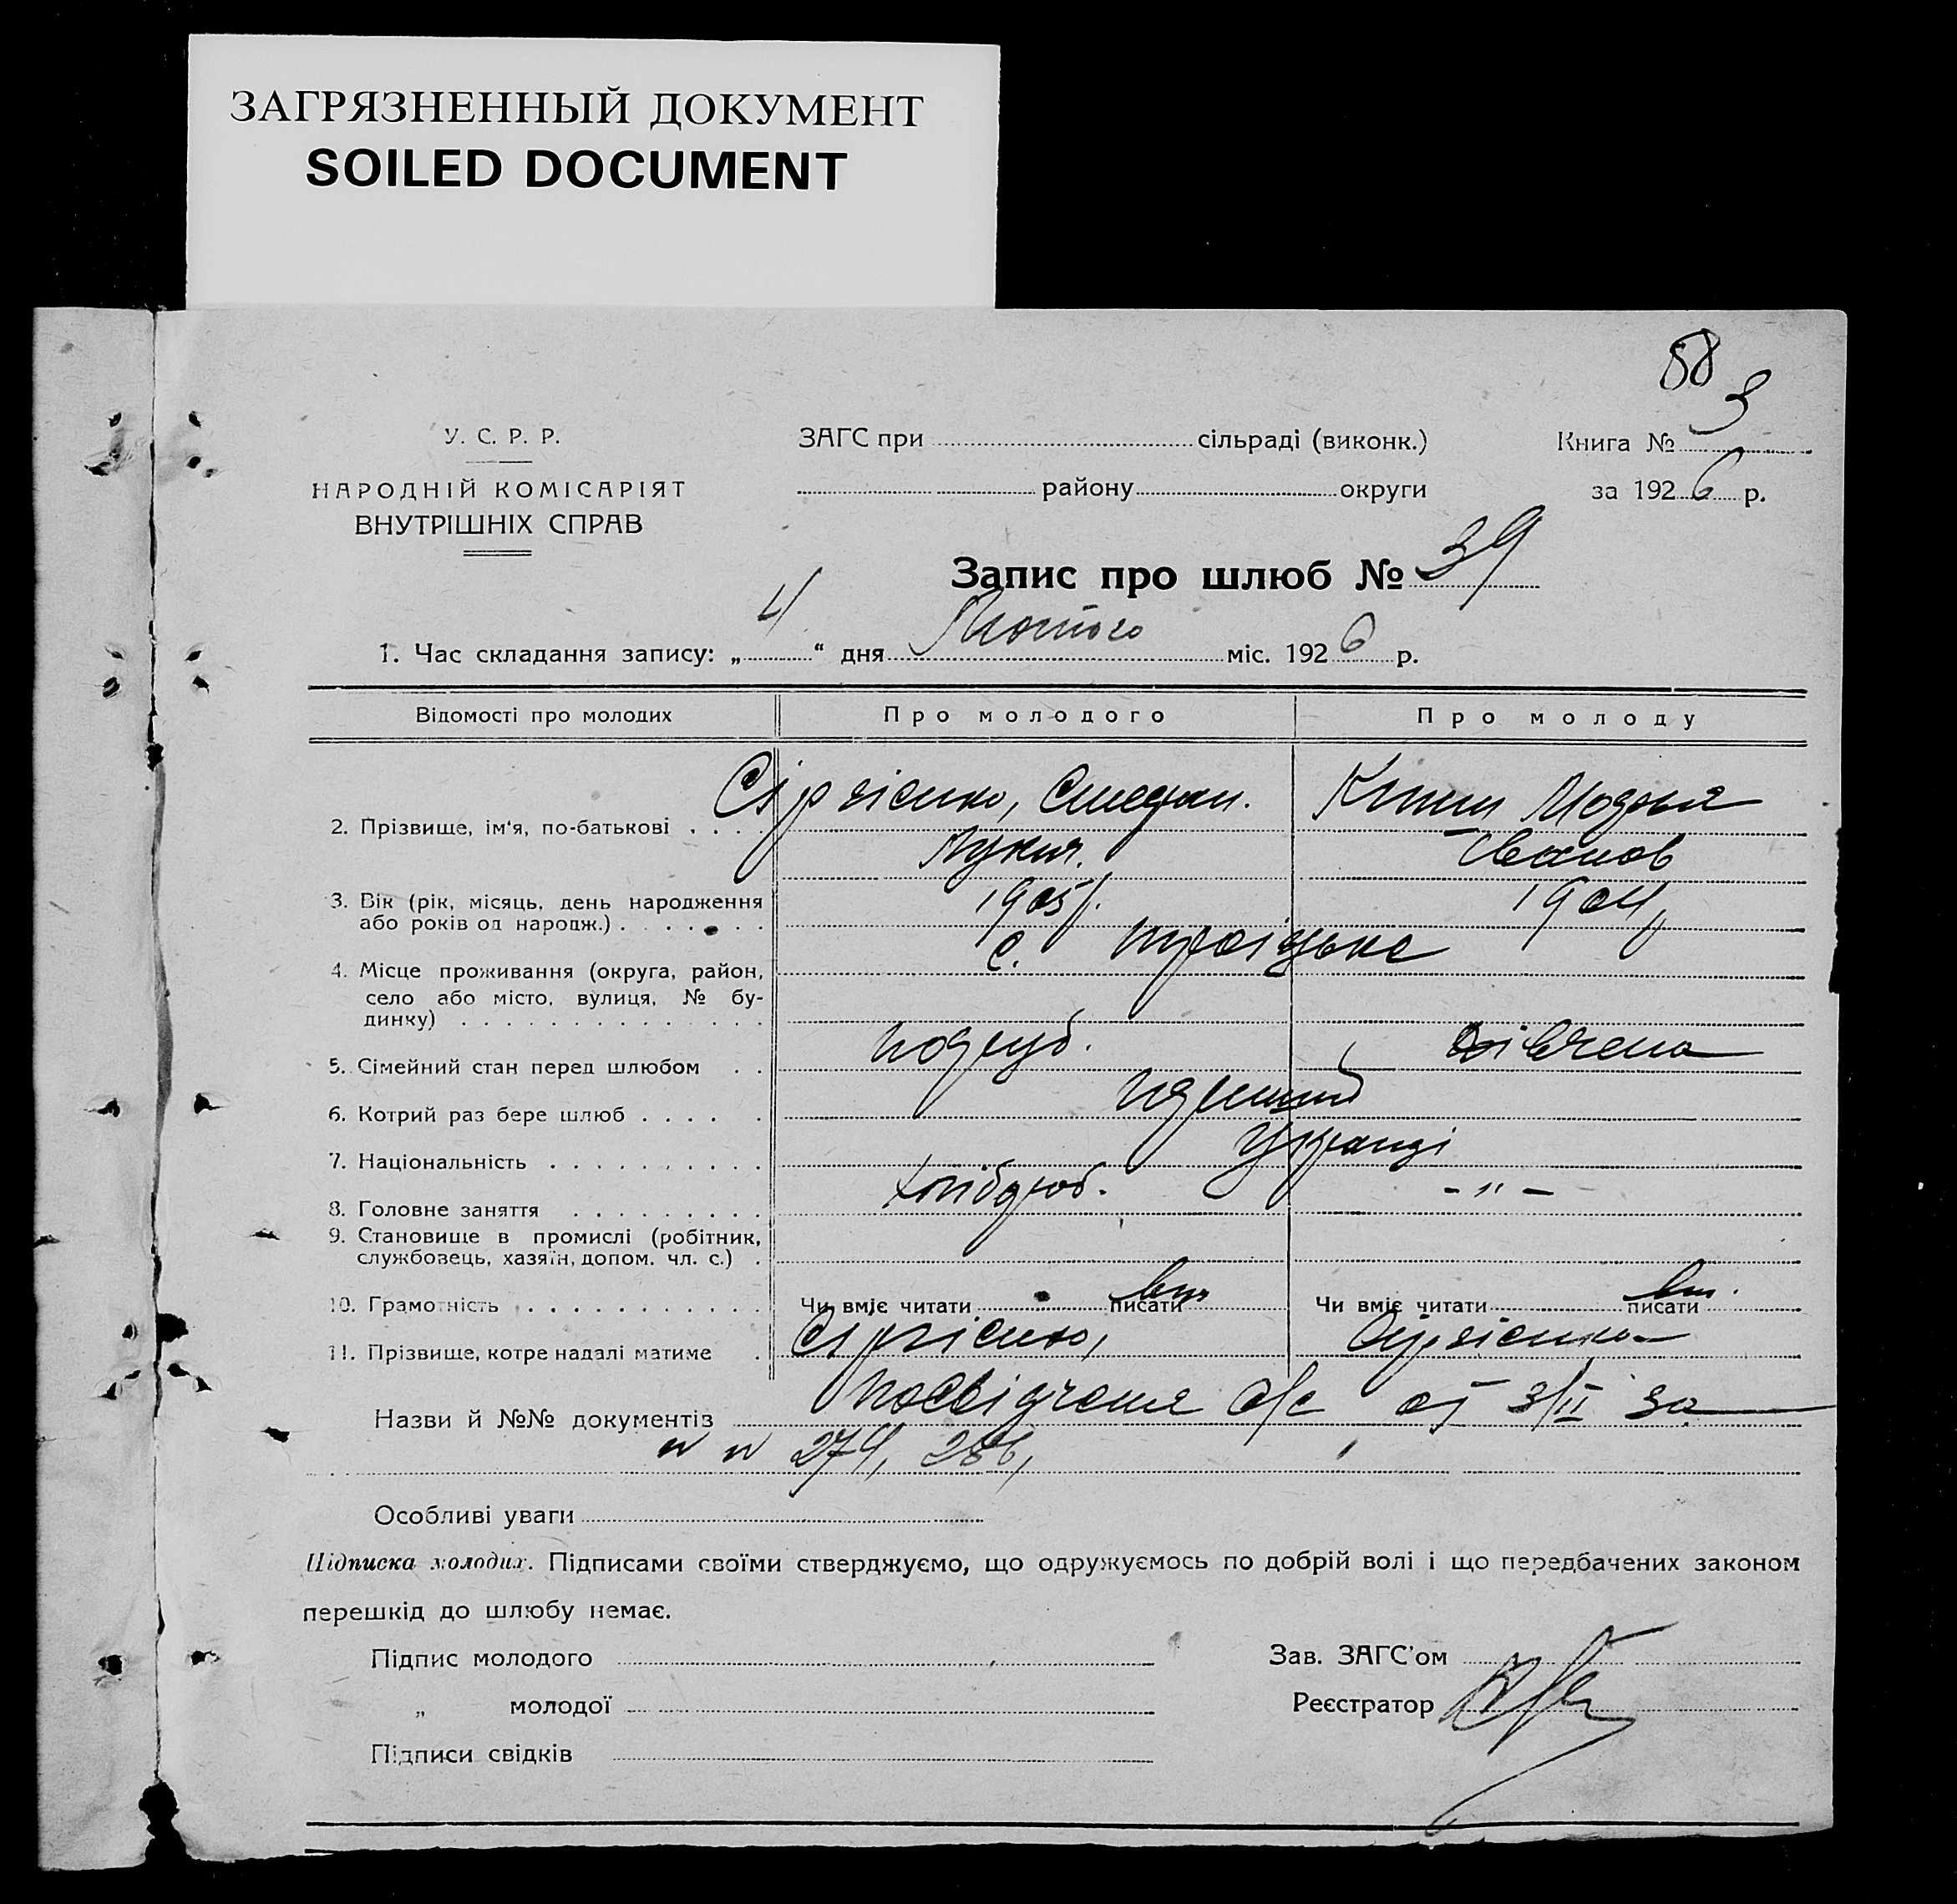 ЗАГРЯЗНЕННЫЙ ДОКУМЕНТ
SOILED DOCUMENT
58
У. С. Р. Р.
НАРОДНІЙ КОМІСАРІЯТ
ВНУТРІШНІХ СПРАВ
ЗАГС при сільраді (виконк.)
району округи
Книга № 3
за 1926 р.
Запис про шлюб № 39
1. Час складання запису: „4“ дня Лютого міс. 1926 р.
Відомості про молодих Про молодого Про молоду
2. Прізвище, ім'я, по-батькові Сіргієнко, Степан.
Лукич. Іванов
3. Вік (рік, місяць, день народження 1905 1904
або років од народж.)
4. Місце проживання (округа, район, с. Троіцьке
село або місто, вулиця, № бу-
динку)
5. Сімейний стан перед шлюбом дівчена
6. Котрий раз бере шлюб
7. Національність
8. Головне заняття хлібороб. -"-
9. Становище в промислі (робітник,
службовець, хазяїн, допом. чл. с.)
10. Грамотність Чи вміє читати писати вм. Чи вміє читати писати вм.
11. Прізвище, котре надалі матиме Сіргієнко, Сіргієнко
Назви й №№ документів посвідченя с/с от 3/II за
№ № 274, 286,
Особливі уваги
Підписка молодих. Підписами своїми стверджуємо, що одружуємось по добрій волі і що передбачених законом
перешкід до шлюбу немає.
Підпис молодого
„ молодої
Підписи свідків
Зав. ЗАГС'ом
Реєстратор